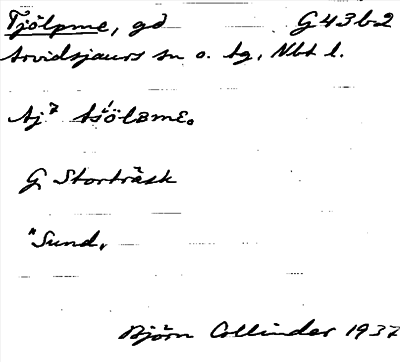 Tjölpme, gd G43b2
Arvidsjaurs sn o. tg, Nbt l.
Aj⁷ tśölʙmᴇ.
G Storträsk
"Sund"
Björn Collinder 1937